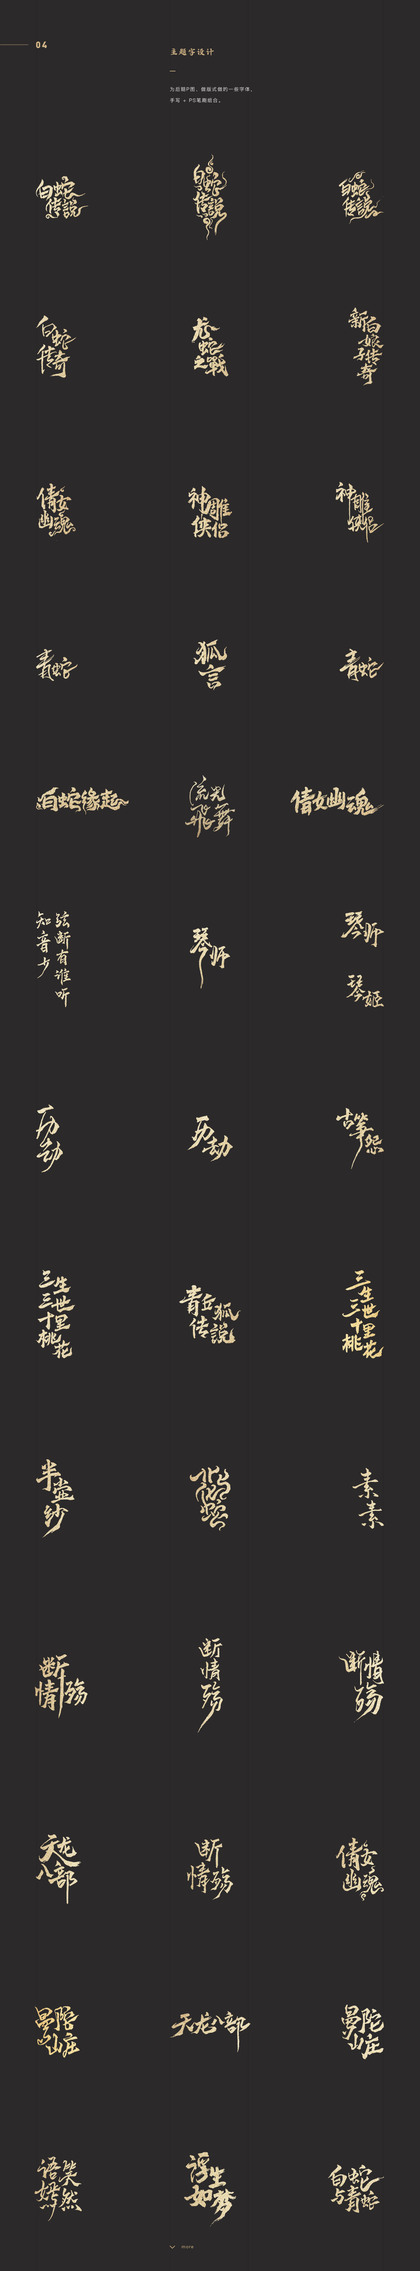 04
主题字设计
为后期P图，做版式做的一些字体，
手写 + PS笔刷组合。
白蛇传说
白蛇传说
白蛇传说
白蛇传奇
龙蛇之戰
新白娘子传奇
倩女幽魂
神雕侠侣
神雕侠侣
青蛇
狐言
青蛇
白蛇缘起
流光飛舞
倩女幽魂
弦断有谁听
知音少
琴师
琴师
琴姬
历劫
历劫
古筝怨
三生三世十里桃花
青丘狐传說
三生三世十里桃花
半壶纱
素素
断情殇
断情殇
断情殇
天龙八部
断情殇
倩女幽魂
曼陀山庄
天龙八部
曼陀山庄
语笑嫣然
浮生如梦
白蛇与青蛇
more